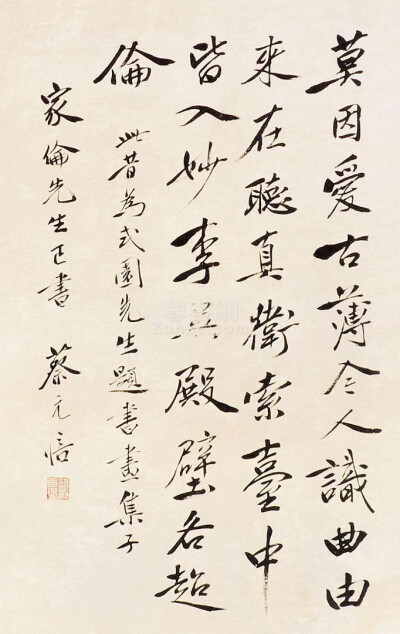 莫因愛古薄今人識曲由
來在聽真衛索臺中
皆入妙李吳殿壁各超
倫
此昔為式園先生題書畫集子
家倫先生正書 蔡元培